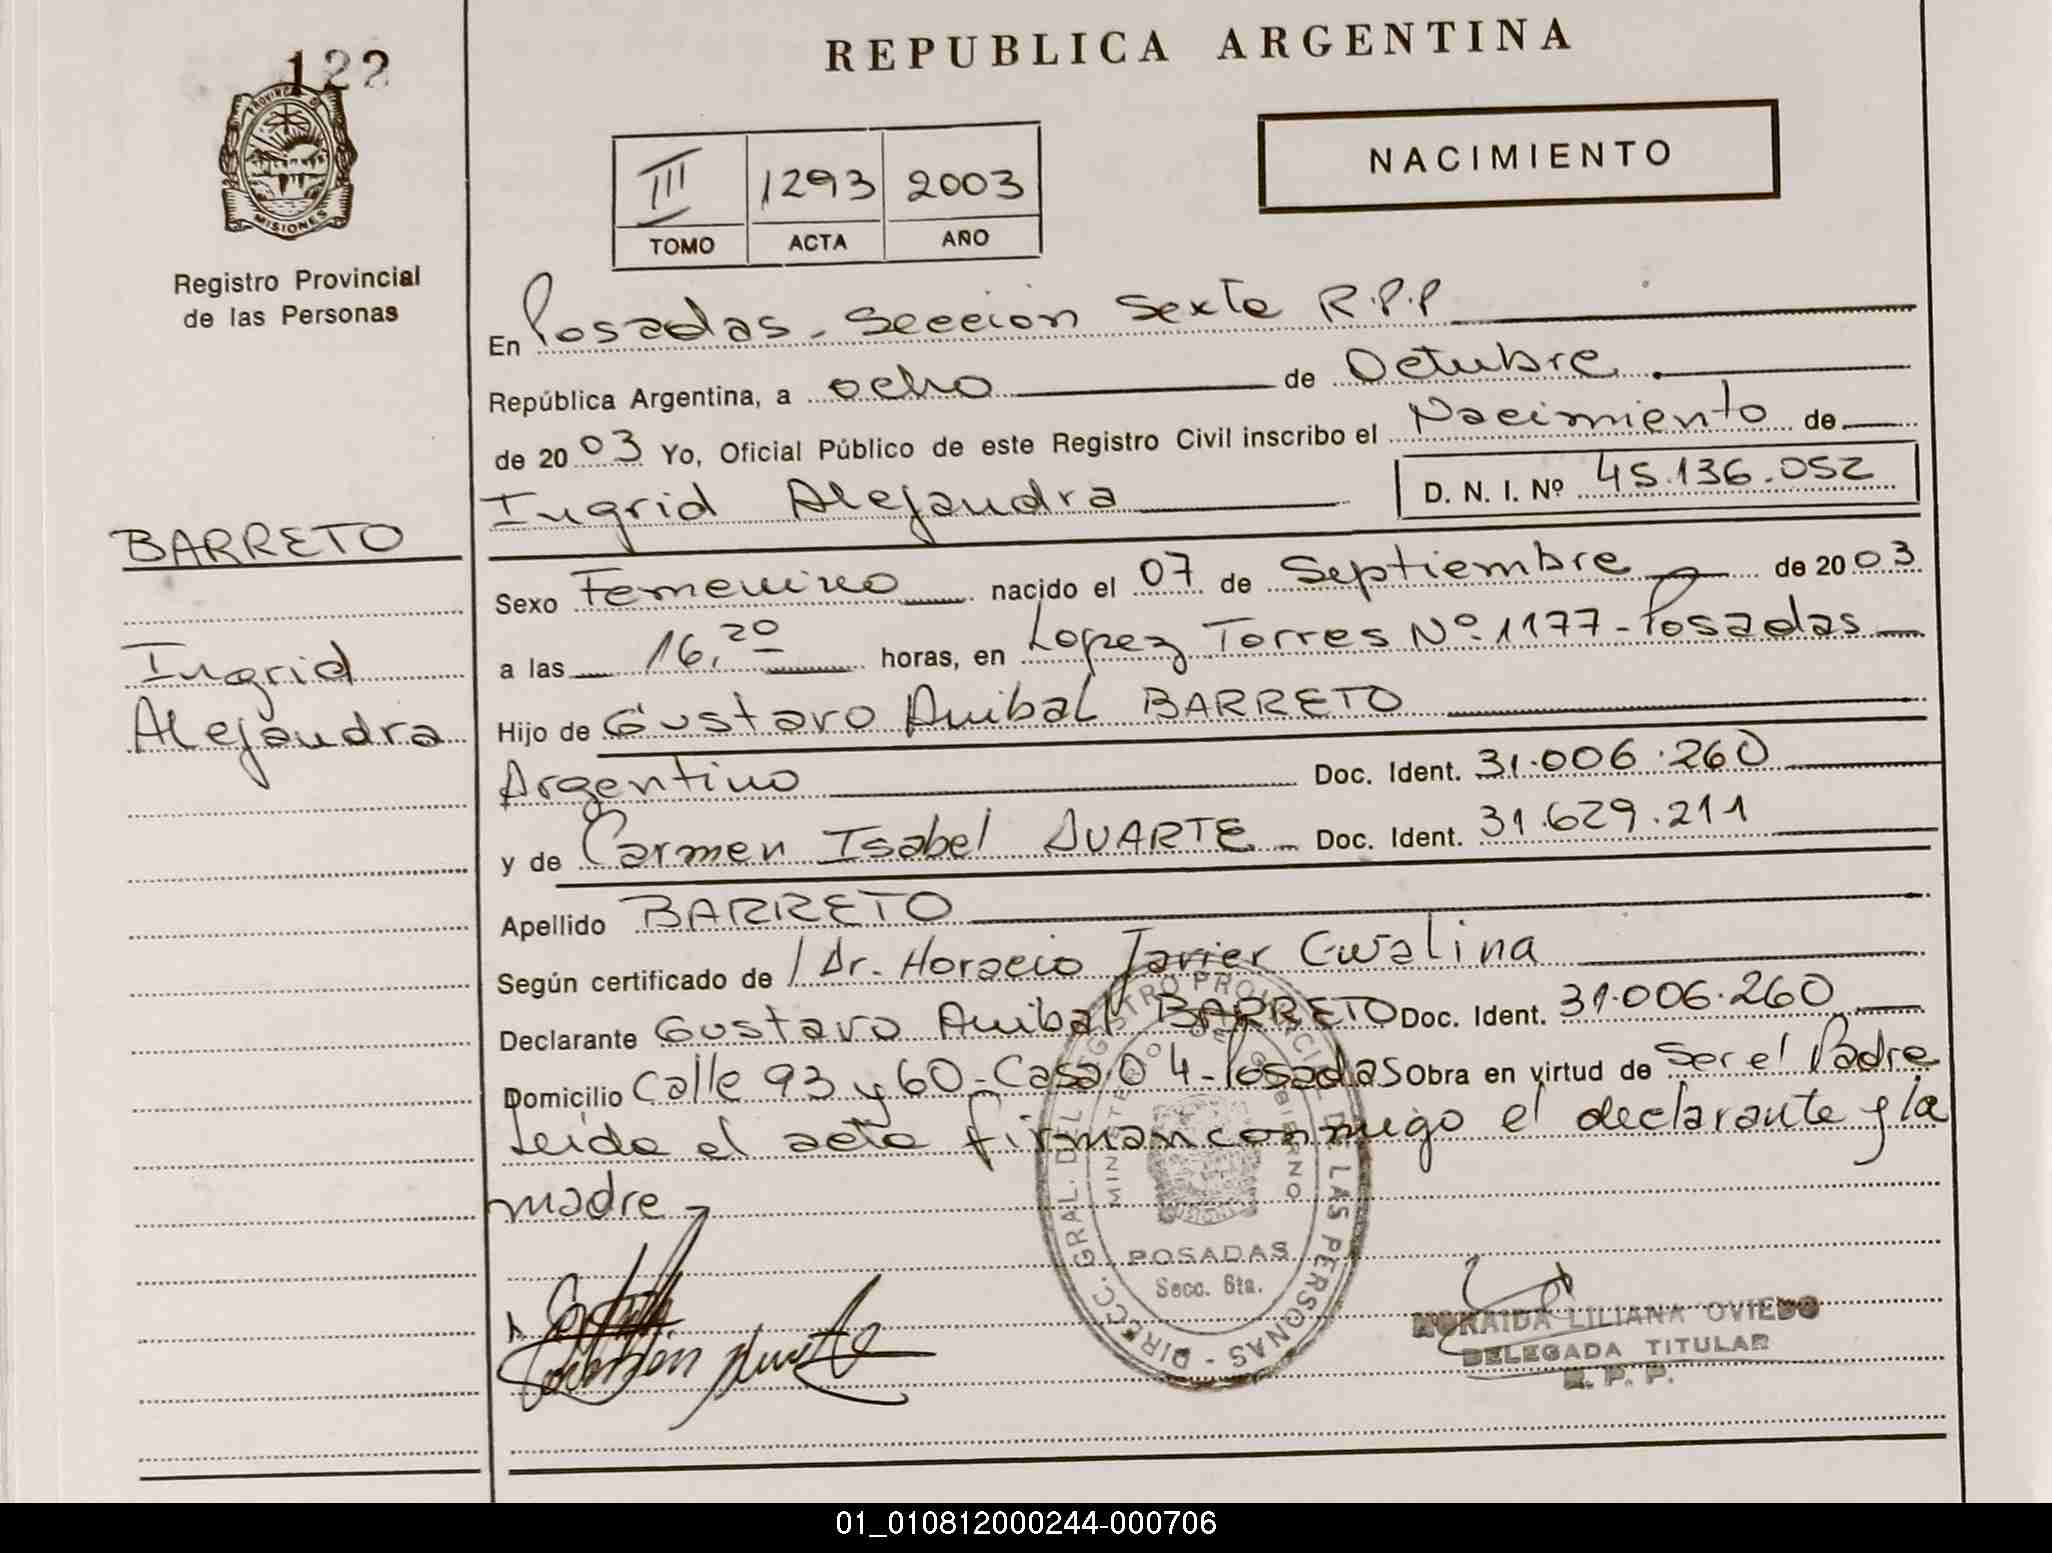 122
REPUBLICA ARGENTINA
PROVINCIA DE
MISIONES
Registro Provincial
de las Personas
III 1293 2003
TOMO ACTA AÑO
NACIMIENTO
En Posadas - Seccion Sexta R.P.P
República Argentina, a ocho de Octubre
de 2003 Yo, Oficial Público de este Registro Civil inscribo el Nacimiento de
Ingrid Alejandra D. N. I. Nº 45.136.052
BARRETO
Ingrid
Alejandra
Sexo Femenino nacido el 07 de Septiembre de 2003
a las 16,20 horas, en Lopez Torres Nº 1177 - Posadas
Hijo de Gustavo Anibal BARRETO
Argentino Doc. Ident. 31.006.260
y de Carmen Isabel DUARTE Doc. Ident. 31.629.211
Apellido BARRETO
Según certificado de Dr. Horacio Javier Cwalina
Declarante Gustavo Anibal BARRETO Doc. Ident. 31.006.260
Domicilio Calle 93 y 60 - Casa 04 - Posadas Obra en virtud de Ser el Padre
Leida el acta firman conmigo el declarante y la
madre
DIRECC. GRAL. DEL REGISTRO PROVINCIAL DE LAS PERSONAS
MINISTERIO DE GOBIERNO
MISIONES
POSADAS
Secc. 6ta.
NORAIDA LILIANA OVIEDO
DELEGADA TITULAR
R. P. P.
01_010812000244-000706